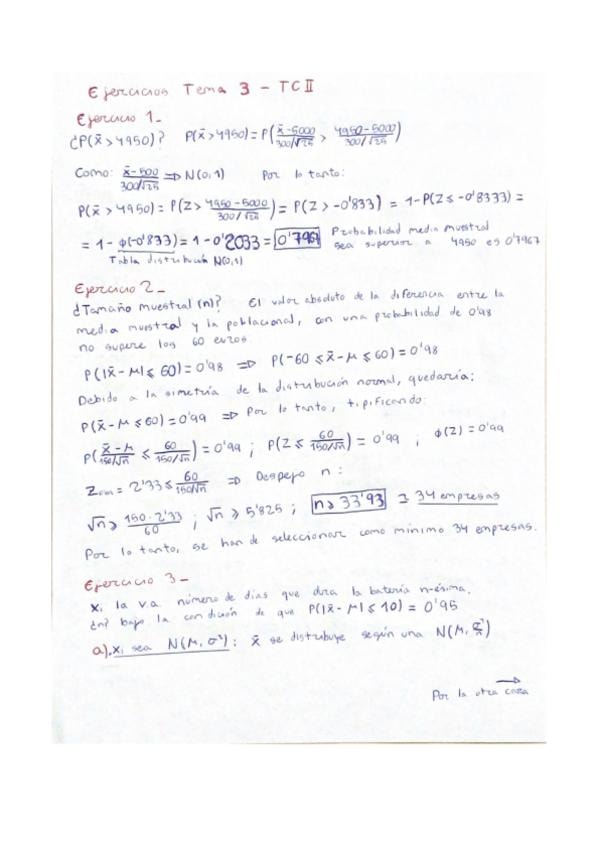 Ejercicios Tema 3 - TCII
Ejercicio 1_
¿P(x̄>4950)? P(x̄>4950)=P(x̄-5000/300/√25 > 4950-5000/300/√25)
Como: x̄-500/300/√25 ⇒ N(0,1) Por lo tanto:
P(x̄>4950)=P(Z>4950-5000/300/√25)=P(Z>-0'833)=1-P(Z≤-0'8333)=
=1-ϕ(-0'833)=1-0'2033=0'7967 Probabilidad media muestral
Tabla distribución N(0,1) sea superior a 4950 es 0'7967
Ejercicio 2_
¿Tamaño muestral (n)? El valor absoluto de la diferencia entre la
media muestral y la poblacional, con una probabilidad de 0'98
no supere los 60 euros.
P(|x̄-μ|≤60)=0'98 ⇒ P(-60≤x̄-μ≤60)=0'98
Debido a la simetría de la distribución normal, quedaría:
P(x̄-μ≤60)=0'99 ⇒ Por lo tanto, tipificando:
P(x̄-μ/150/√n ≤ 60/150/√n)=0'99; P(Z≤60/150/√n)=0'99; ϕ(Z)=0'99
Z=2'33≤60/150/√n ⇒ Despejo n:
√n≥150·2'33/60; √n≥5'825; n≥33'93 ≅ 34 empresas
Por lo tanto, se han de seleccionar como mínimo 34 empresas.
Ejercicio 3_
Xi la v.a. número de días que dura la batería n-ésima.
¿n? bajo la condición de que P(|x̄-μ|≤10)=0'95
a). Xi sea N(μ,σ²): x̄ se distribuye según una N(μ,σ²/n)
Por la otra cara